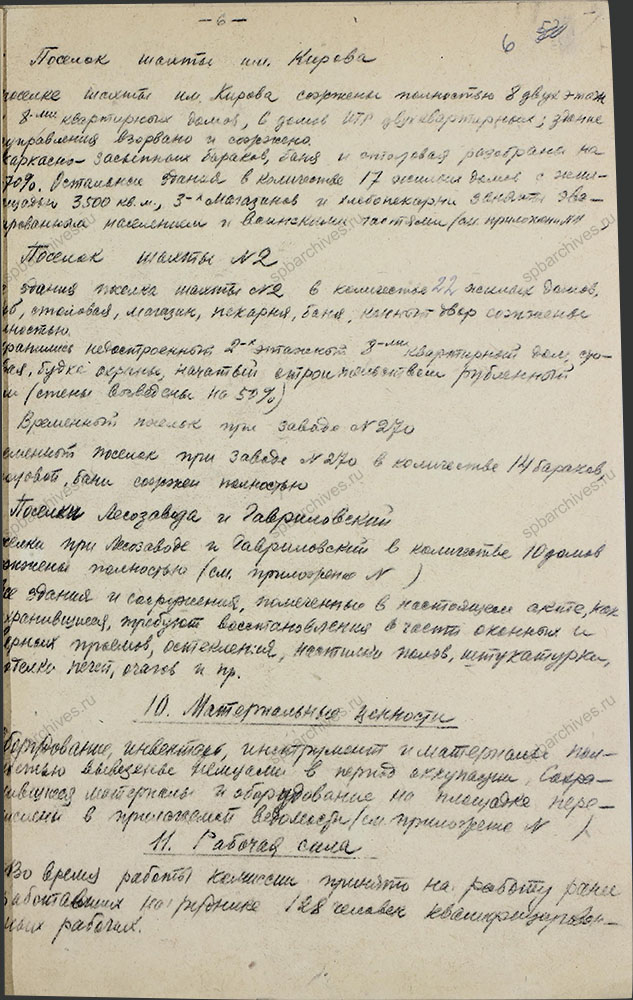 — 6 —
6
Поселок шахты им. Кирова
поселке шахты им. Кирова сожжены полностью 8 двух этаж
8-ми квартирных домов, 6 домов ИТР двухквартирных; здание
управления взорвано и сожжено.
каркасно-засыпных бараков, баня и столовая разобрана на
70%. Остальные здания в количестве 17 жилых домов с жил-
щадью 3500 кв.м., 3-х магазинов и хлебопекарни заняты эва-
ированным населением и Воинскими частями (см. приложени N )
Поселок шахты N2
здания поселка шахты N2 в количестве 22 жилых домов,
столовая, магазин, пекарня, баня, конный двор сожжены
лностью.
хранились недостроенный 2-х этажный 8-ми квартирный дом,
будка охраны, начатый строительством рубленный
м (стены возведены на 50%)
Временный поселок при заводе N 270
еменный поселок при заводе N 270 в количестве 14 бараков,
толовой, бани сожжен полностью
Поселки Лесозавода и Гавриловский
селки при Лесозаводе и Гавриловский в количестве 10 домов
ожжены полностью (см. приложение N )
се здания и сооружения, помеченные в настоящем акте, как
хранившиеся, требуют восстановления в части оконных и
верных проемов, остекления, настилки полов, штукатурки,
отелки печей, очагов и пр.
10. Материальные ценности
борудование, инвентарь, инструмент и материалы пол-
остью вывезены немцами в период оккупации. Сохра-
нившиеся материалы и оборудование на площадке пере-
ислены в прилагаемой ведомости (см. приложение N )
11. Рабочая сила
Во время работы комиссии принято на работу ранее
работавших на руднике 128 человек квалифицирован-
ных рабочих.
spbarchives.ru